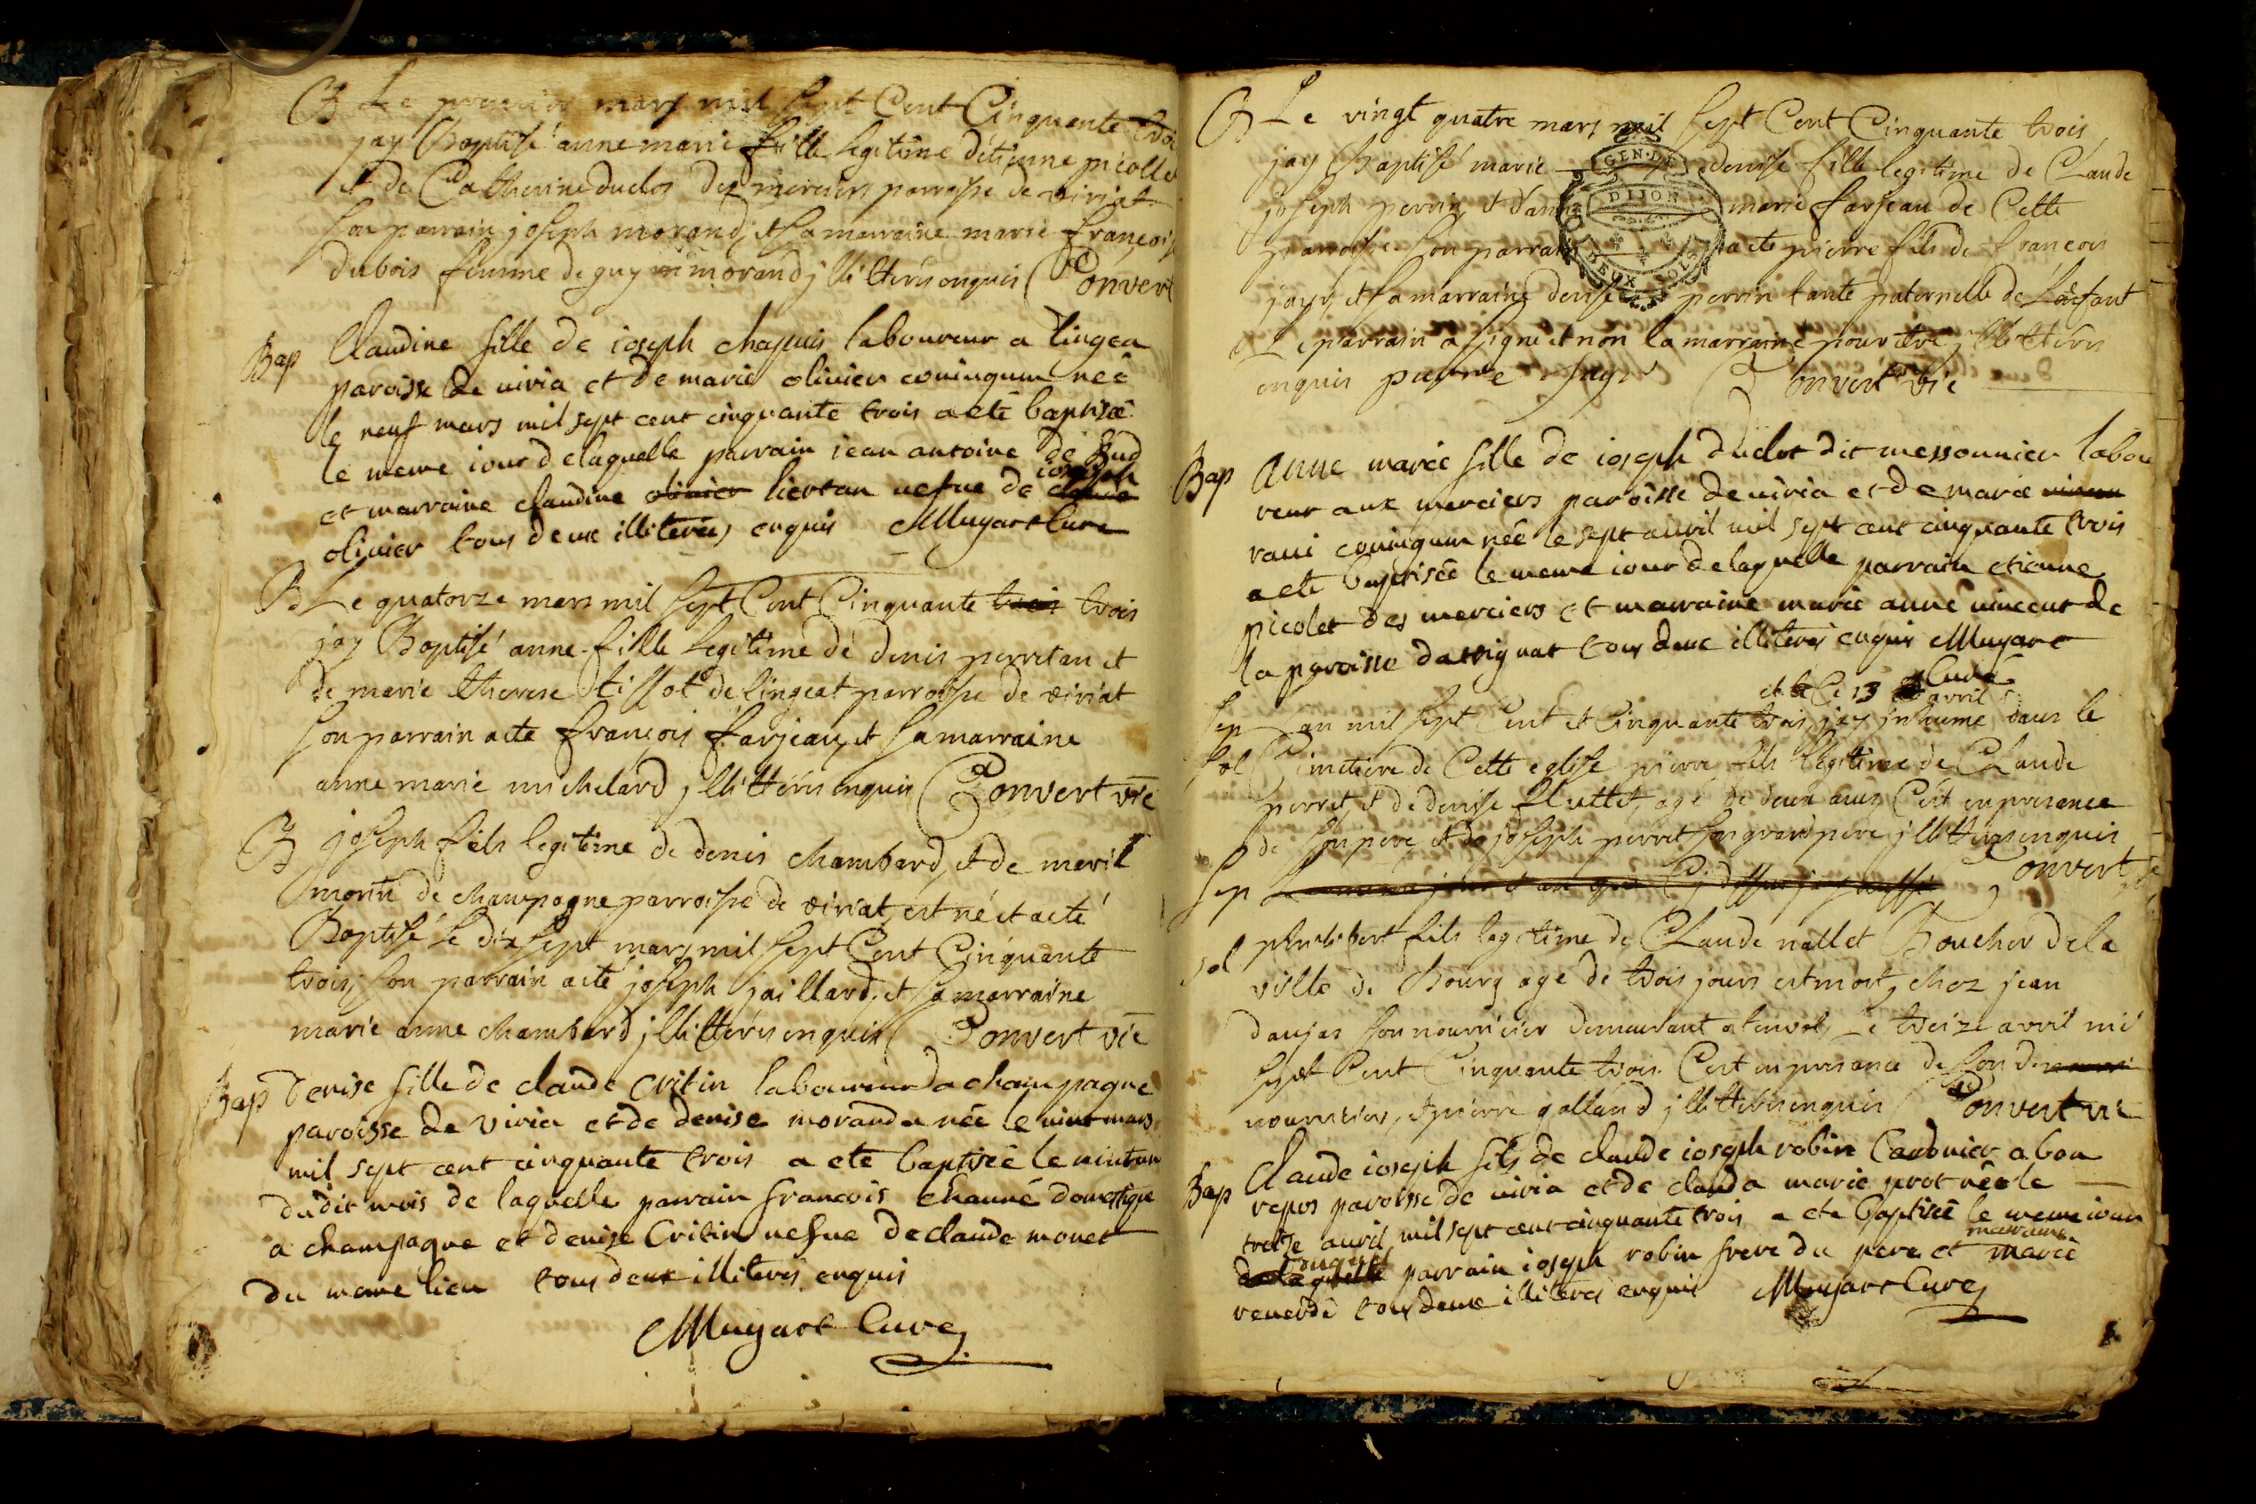 B Le premier mars mil sept Cent Cinquante trois
jay Baptisé anne marie fille legitime d'étienne picollet
et de Catherine duclos des merciers parroisse de viriat
son parrain joseph morand, et sa marraine marie françoise
dubois femme de guy morand jlliterés enquis Convert
Bap Claudine fille de ioseph chapuis laboureur a lingea
paroisse de viria et de marie olivier couingum neé
le neuf mars mil sept cent cinquante trois a eté baptiseé
le meme iour de laquelle parrain iean antoine de Bud
et marraine claudine olivier liertan vefue de ioseph claude
olivier tous deux illiterés enquis Muyart Cure
B Le quatorze mars mil sept Cent Cinquante trois trois
jay Baptisé anne fille legitime dé denis perretan et
de marie therese tissot de lingeat parroisse de viriat
son parrain a eté françois farjeau, et sa marraine
anne marie michelard jlliterés enquis Convert vic
B joseph fils legitime de denis chambard, et de marie
mornu de champagne parroisse de viriat, est né et a eté
Baptisé le dix sept mars mil sept Cent Cinquante
trois, son parrain a eté joseph jaillard, et sa marraine
marie anne chambard jlliterés enquis Convert vic
Bap denise fille de claude Critin laboureur a champagne
paroisse de viria et de denise moranda neé le vint mars
mil sept cent cinquante trois a eté baptiseé le vint un
dudit mois de laquelle parrain francois channé domestique
a champagne et denise Critin vefue de claude monet
du meme lieu tous deux illiterés enquis
Muyart Cure
B Le vingt quatre mars mil sept Cent Cinquante trois
jay Baptisé marie denise fille legitime de Claude
joseph perrin, et d'anne marie farjeau de Cette
parroisse son parrain a eté pierre fils de francois
jayr, et sa marraine denise perrin tante paternelle de L'enfant
Le parrain a signé et non la marraine pour etre jlliteré
enquis pierre jayr Convert vic
GEN. DE
DIJON
DEUX SOLS
Bap anne marie fille de ioseph duclot dit messonnier labou
reur aux merciers paroisse de viria et de marie
ravi couingum neé le sept avril mil sept cent cinquante trois
a eté baptiseé le meme iour de laquelle parrain etienne
picolet des merciers et marraine marie anne vincent de
la paroisse dattignat tous deux illiterés enquis Muyart
Curé
et le 13 avril
Sep L'an mil sept Cent et Cinquante trois, jay jnhumé dans le
sol Cimetiere de Cette eglise pierre fils legitime de CLaude
perret et de denise fluttet agé de deux ans, C'est en presence
de son pere, et de joseph perret son grand pere jlliterés enquis
Sep Convert vic
sol philibert fils legitime de CLaude nallet Boucher de la
ville de Bourg agé de trois jours est mort, chez jean
danjas son nourricier demeurant a Le treize avril mil
sept Cent Cinquante trois C'est en presence de son dit
nourricier, et pierre galland jlliterés enquis Convert vic
Bap Claude ioseph fils de claude ioseph robin Charbonier a bon
repos paroisse de viria et de clauda marie prot né le
treise avril mil sept cent cinquante trois a eté baptisé le meme iour
de laquelle duquel parrain ioseph robin frere du pere et marraine marie
reverdi tous deux illiterés enquis Muyart Cure